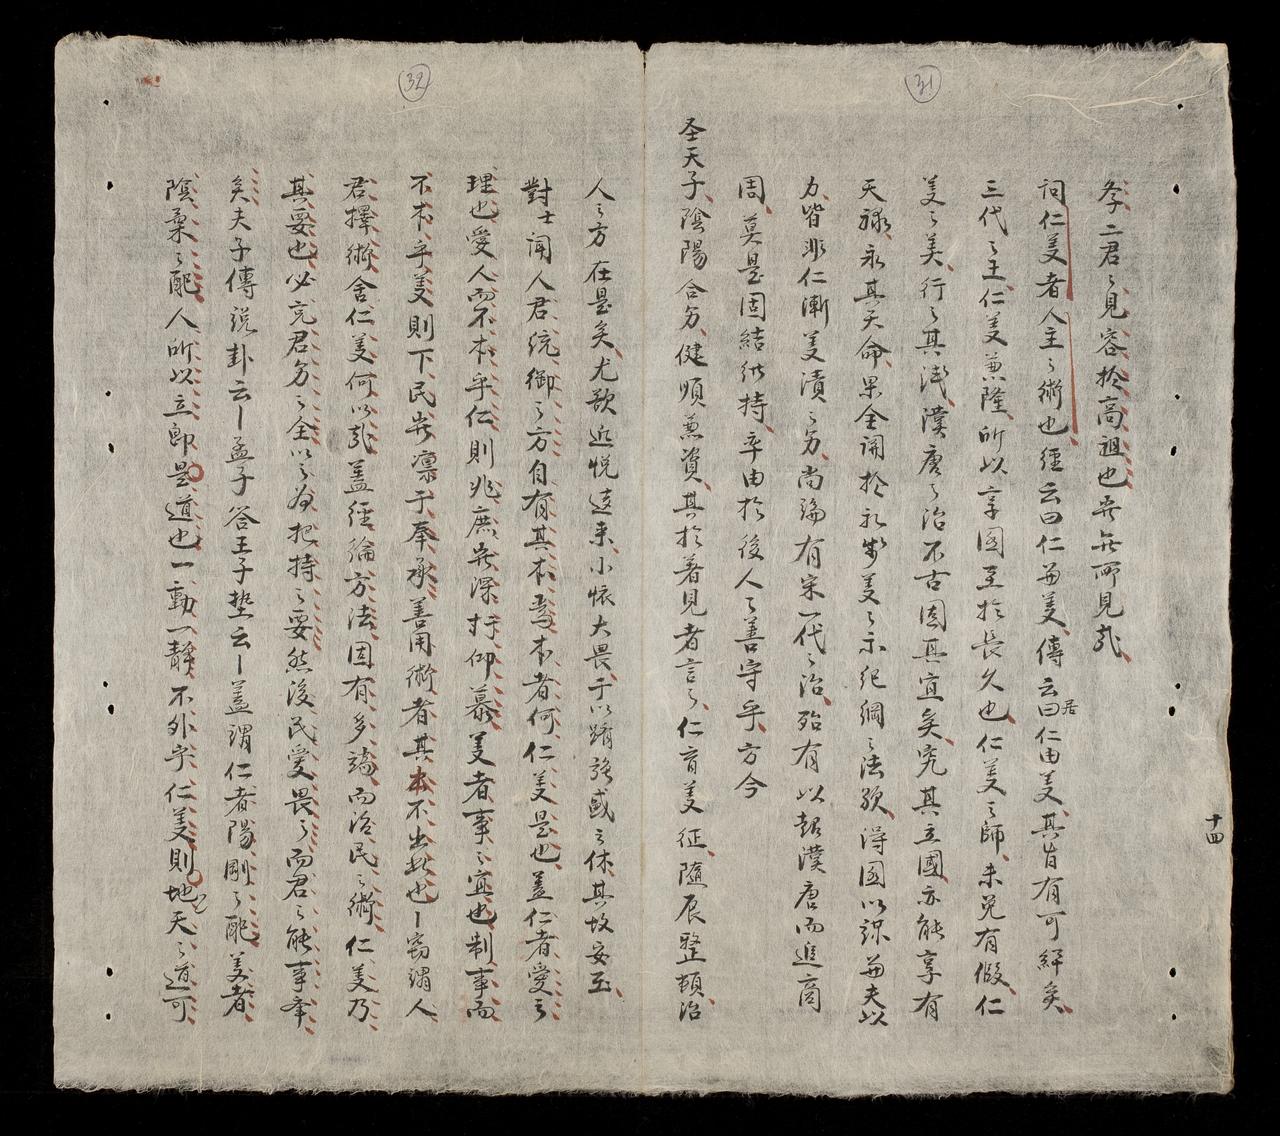 31
孝二君之見容於高祖也豈無所見哉
詞仁義者人主之術也經云曰仁與義傳云曰居仁由義其旨有可繹矣
三代之王仁義兼隆所以享國至於長久也仁義之師未免有假仁
義之美行之其淺漢唐之治不古固其宜矣究其立國亦能享有
天祿永其天命果全關於礼與義之示紀綱之法歟得國以諒與夫以
力皆非仁漸義漬之効尚論有宋一代之治殆有以超漢唐而追商
周莫是固結維持卒由於後人之善守乎方今
圣天子陰陽合旁健順兼資其於著見者言之仁育義征隨展整頓治
十四
32
人之方在是矣尤歌近悅遠来小懷大畏于以躋強盛之休其故安在
對士聞人君統御之方自有其本為本者何仁義是也盖仁者愛之
理也愛人而不本乎仁則兆庶豈深於仰慕義者事之宜也制事而
不本乎義則下民豈凛于奉承善用術者其本不出此也丨竊謂人
君擇術舍仁義何以哉盖經綸方法固有多端而治民之術仁義乃
其要也必究君旁之全以之為把持之要然後民愛畏之而君之能事畢
矣夫子傳說卦云丨孟子答王子墊云丨盖謂仁者陽剛之配義者
陰柔之配人所以立即是道也一動一靜不外乎仁義則地天之道可